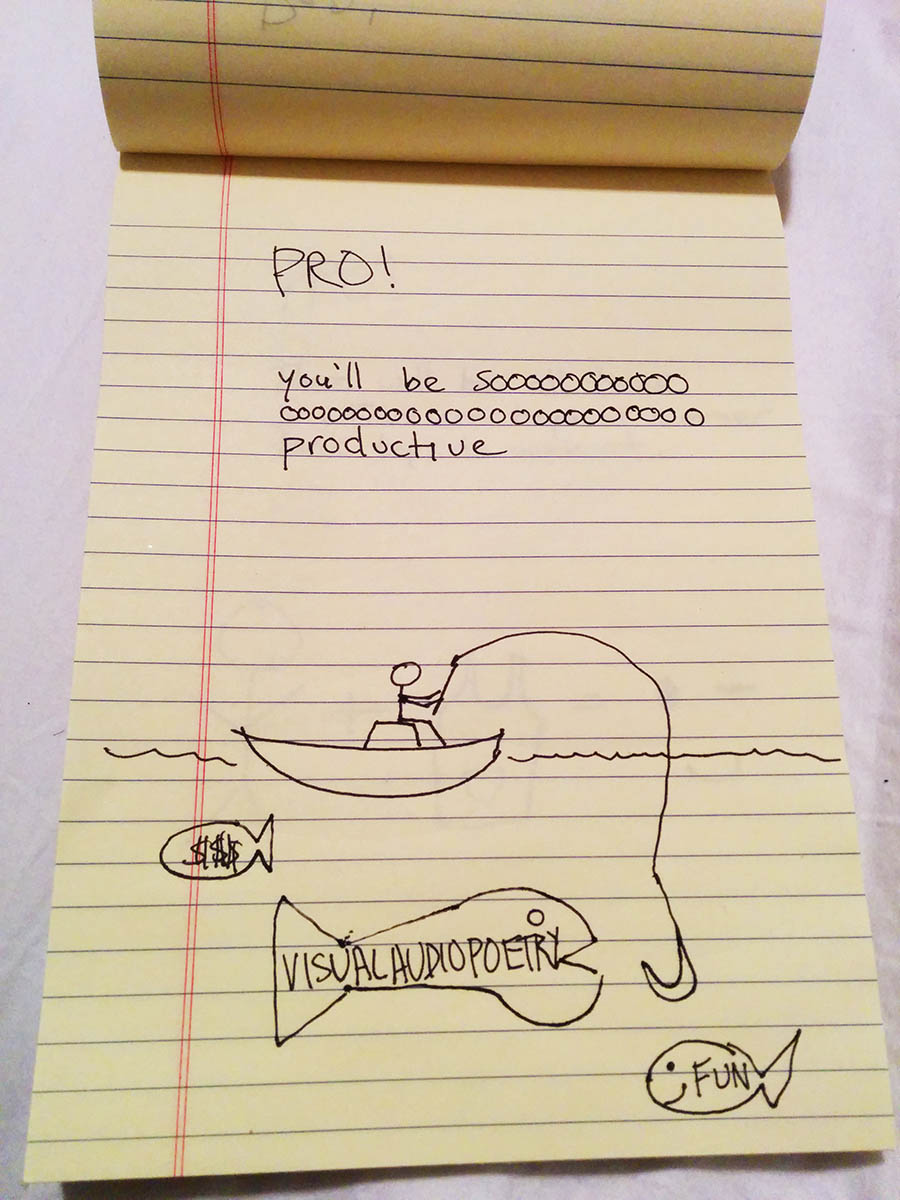 PRO!
you'll be soooooooooooo
ooooooooooooooooooooooo
productive
$$$
VISUALAUDIOPOETRY
FUN